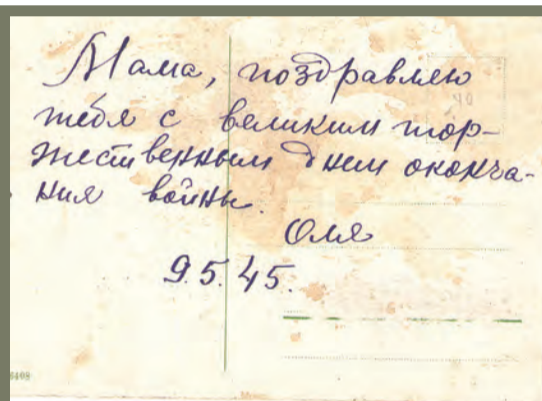 Мама, поздравляю
тебя с великим тор-
жественным днем оконча-
ния войны.
Оля
9.5.45.
6408